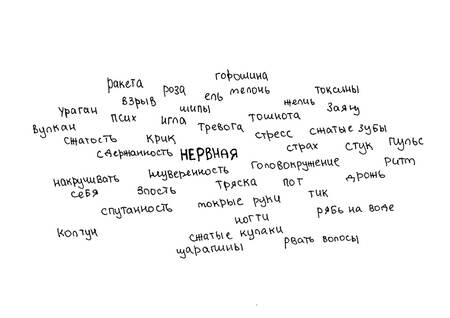 горошина
ракета роза ель мелочь токсины
ураган взрыв шипы желчь Заяц
вулкан псих игла тревога тошнота
сжатость крик стресс сжатые зубы
сдержанность НЕРВНАЯ страх стук пульс
накручивать себя неуверенность головокружение ритм
злость тряска пот дрожь
спутанность мокрые руки тик
ногти рябь на воде
колтун сжатые кулаки
царапины рвать волосы